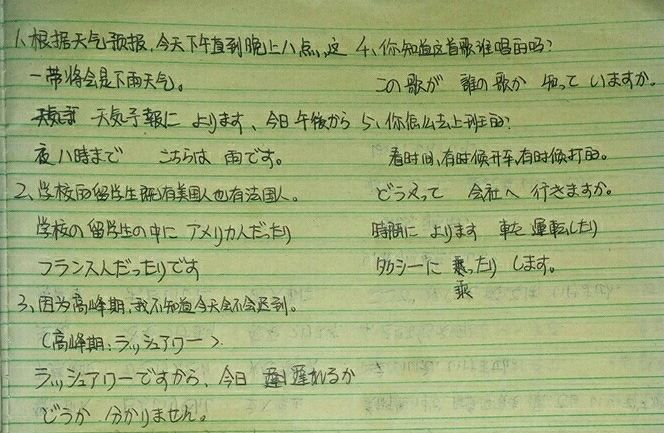 1、根据天气预报,今天下午直到晚上八点,这
一带将会是下雨天气。
天気予報に よります、今日午後から
夜八時まで こちらは 雨です。
2、学校的留学生既有美国人也有法国人。
学校の留学生の中に アメリカ人だったり
フランス人だったりです
3、因为高峰期,我不知道今天会不会迟到。
(高峰期:ラッシュアワー)
ラッシュアワーですから、今日 遅れるか
どうか 分かりません。
4、你知道这首歌谁唱的吗?
この歌が 誰の歌か 知って いますか。
5、你怎么去上班的?
看时间,有时候开车,有时候打的。
どうえって 会社へ 行きますか。
時間に よります 車を 運転したり
タクシーに 乗ったり します。
乘